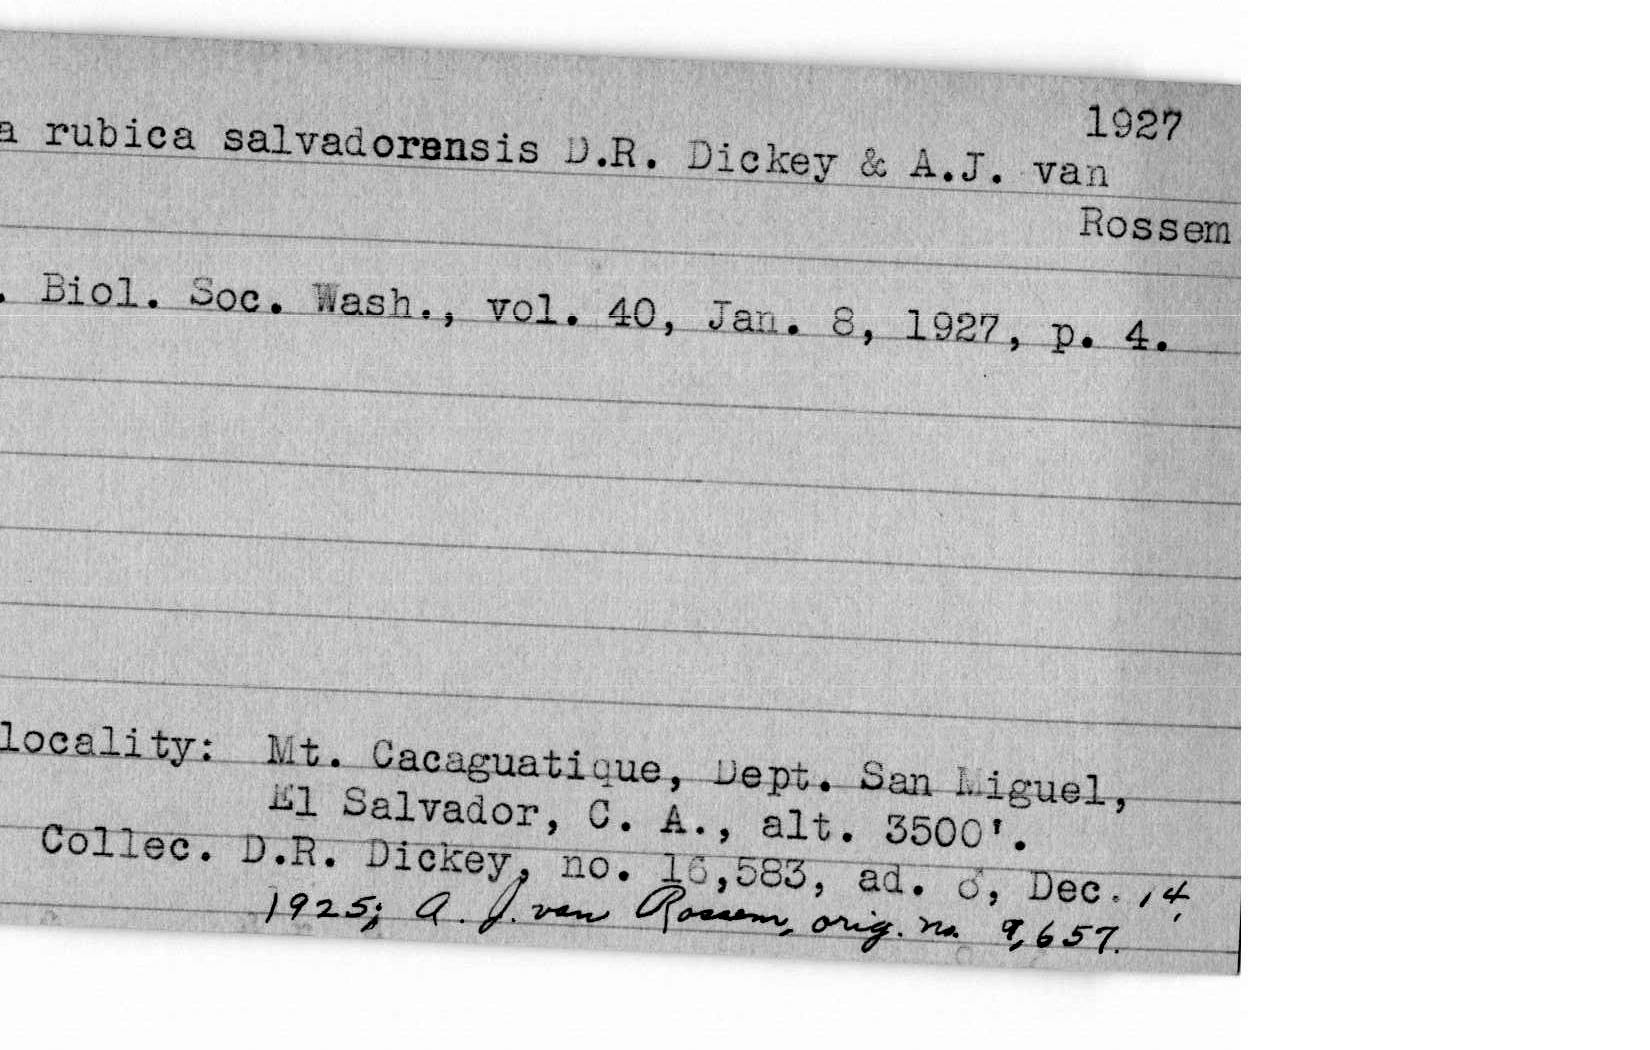 1927
a rubica salvadorensis D.R. Dickey & A.J. van
Rossem
. Biol. Soc. Wash., vol. 40, Jan. 8, 1927, p. 4.
locality: Mt. Cacaguatique, Dept. San Miguel,
El Salvador, C. A., alt. 3500'.
Collec. D.R. Dickey, no. 16,583, ad. ♂, Dec. 14,
1925; A. J. van Rossem, orig. no. 9,657.